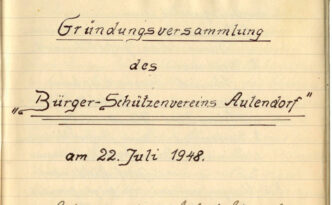 Gründungsversammlung
des
„Bürger-Schützenvereins Aulendorf"
am 22. Juli 1948.